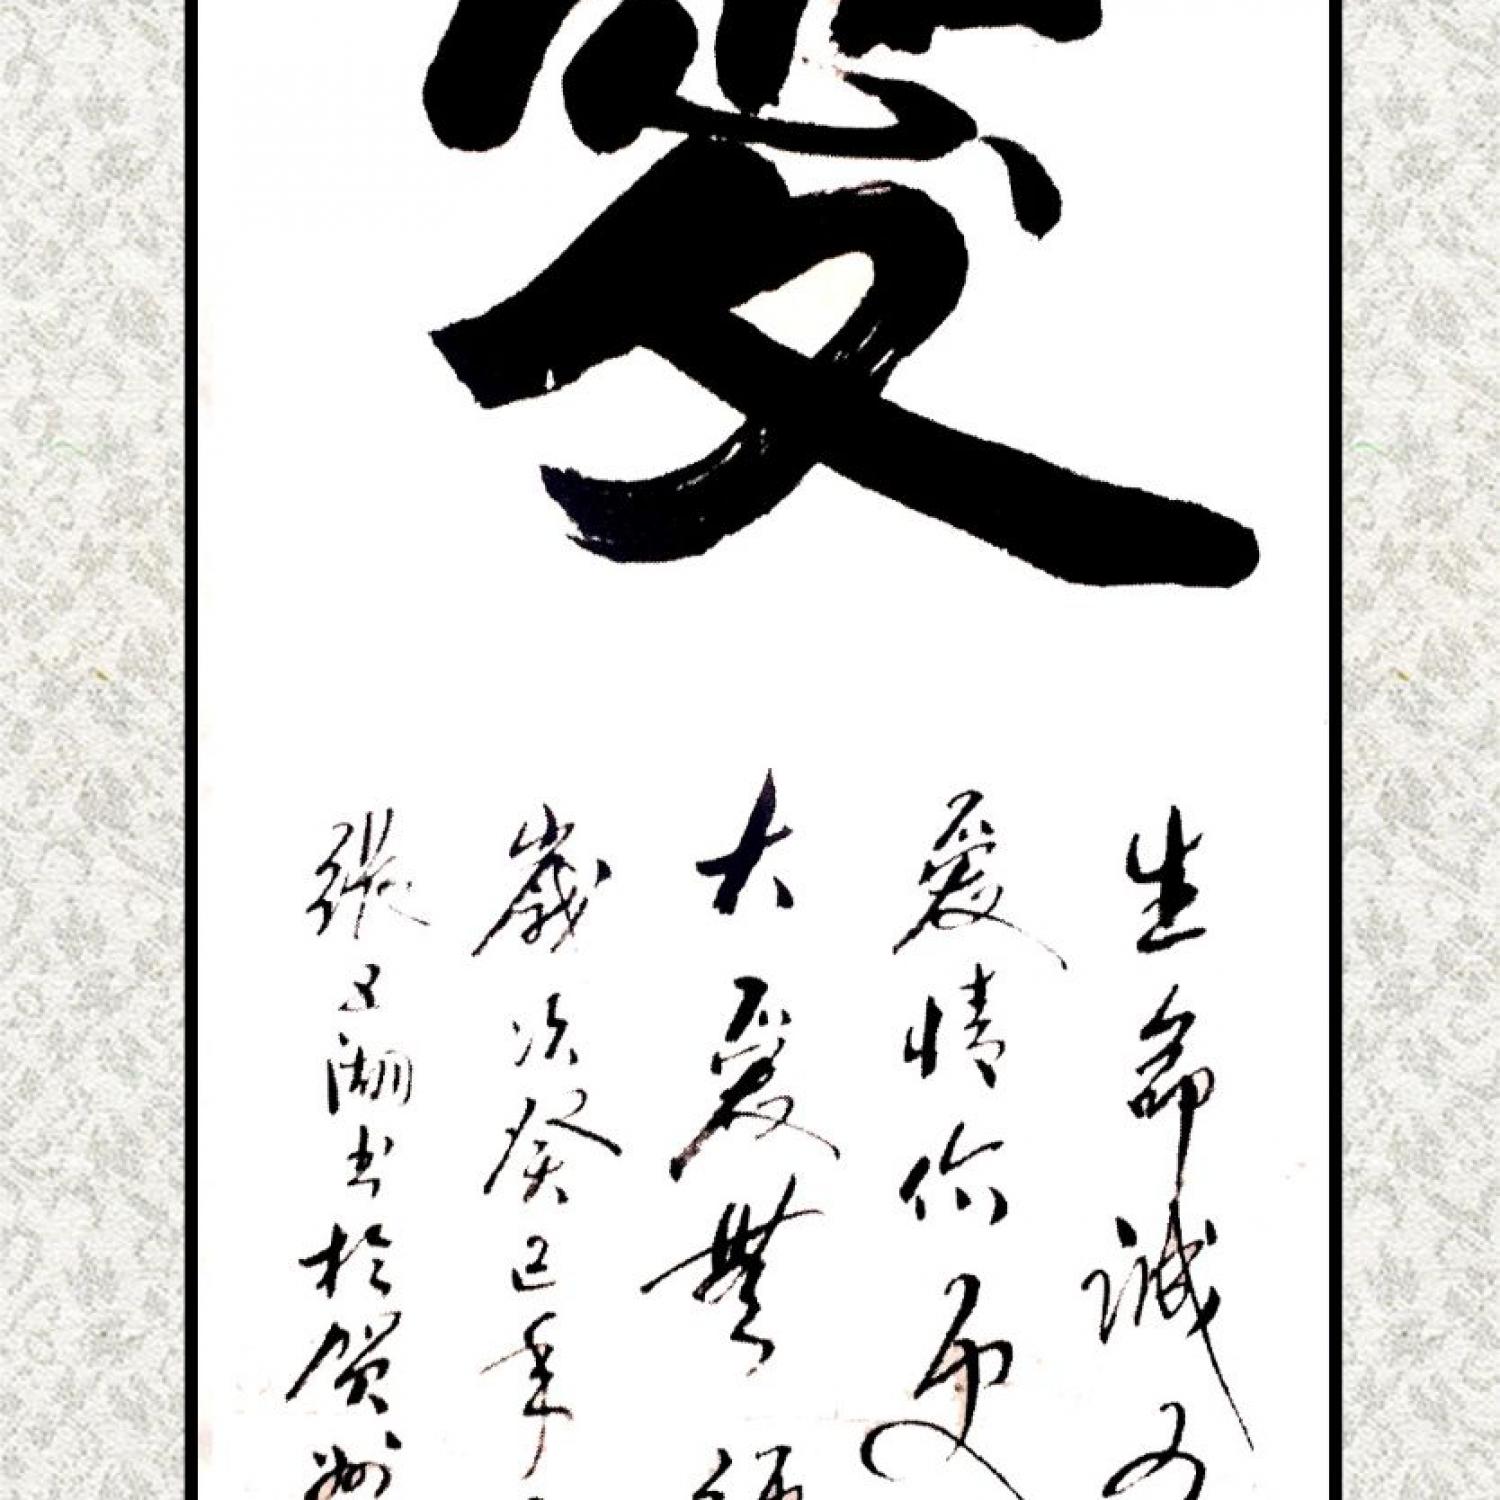 愛
生命誠可
愛情價更
大愛無
歲次癸巳年
張文湖书於賀州